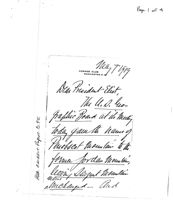 Page 1 of 4
May 7 1919
COSMOS CLUB
WASHINGTON D.C.
Dear President Eliot.
The U.S. Geo-
graphic Board at its meeting
today gave the name of
Penobscot Mountain to the
former Jordan Mountain
leaving Sargent Mountain
unchanged. And